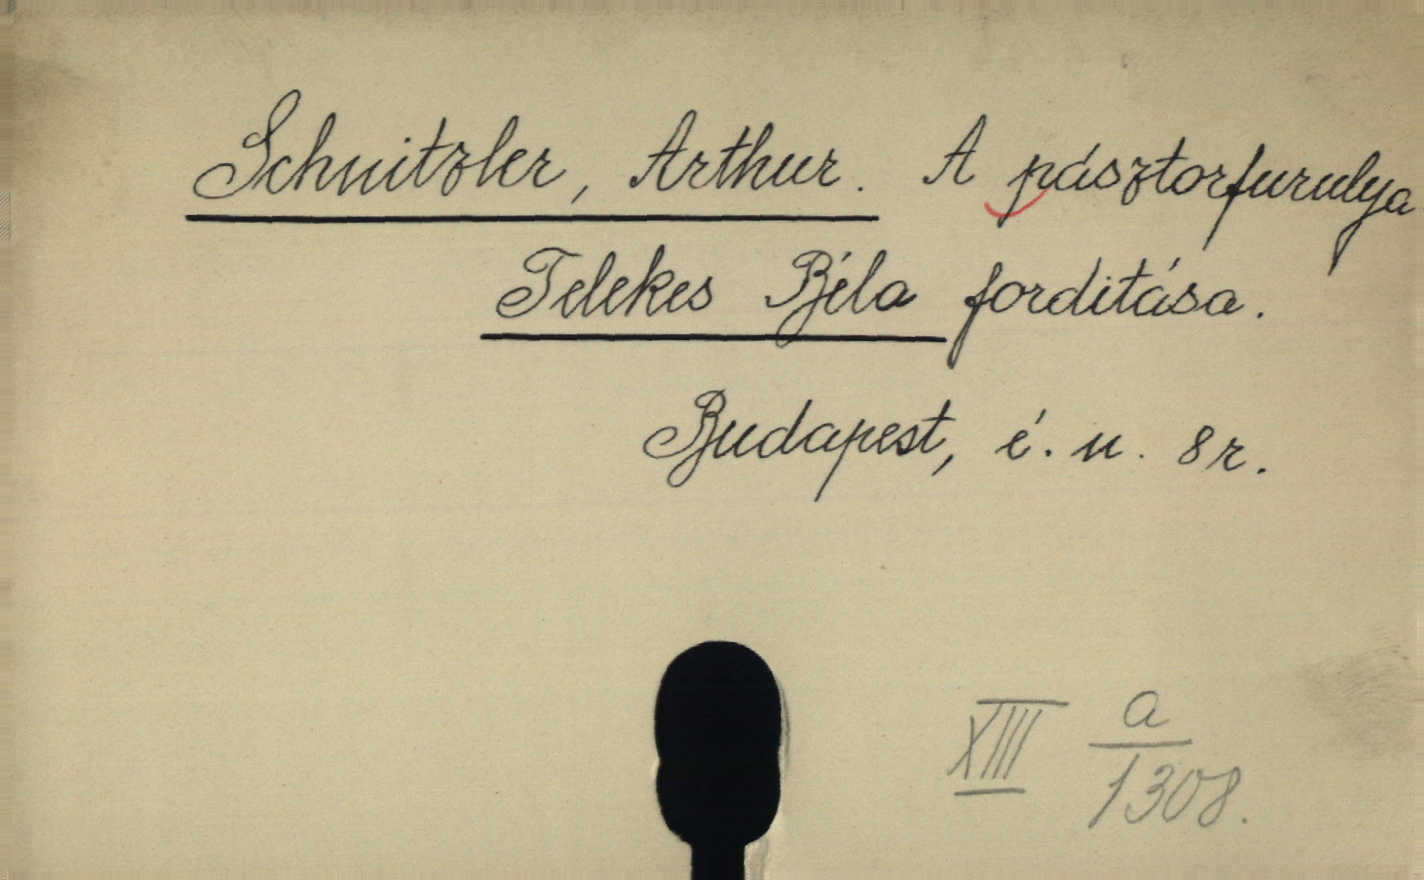 Schnitzler, Arthur. A pásztorfurulya
Telekes Béla forditása.
Budapest, é. n. 8r.
XIII a
1308.